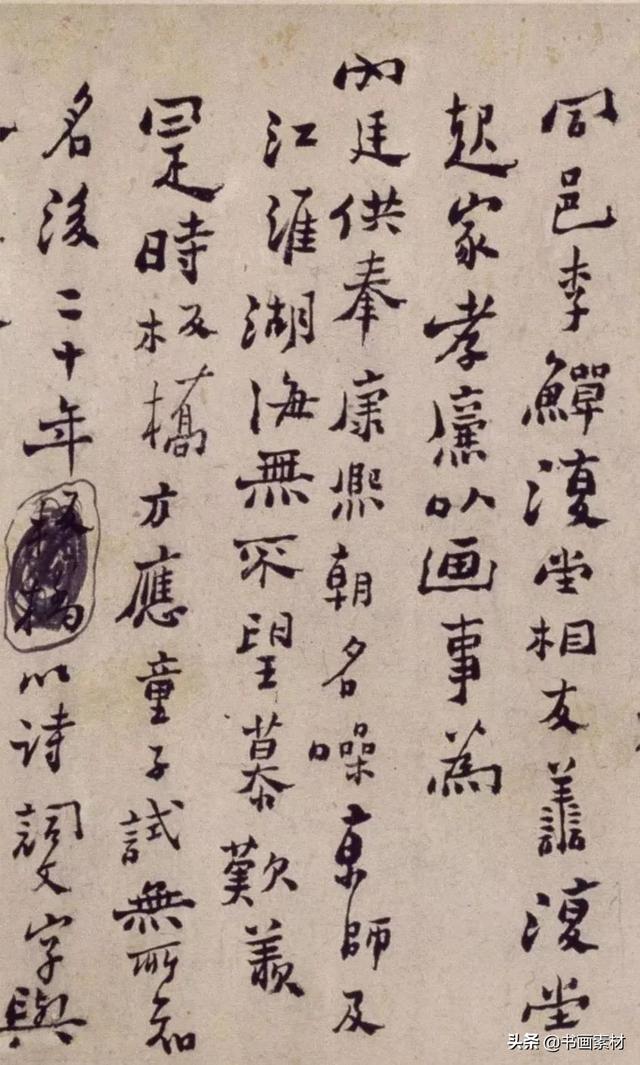 同邑李鱓復堂相友譱復堂
起家孝廉以画事為
內廷供奉康熙朝名噪京師及
江淮湖海無不望慕歎羨
是時板橋方應童子試無所知
名後二十年板橋以詩詞文字與
头条 @书画素材